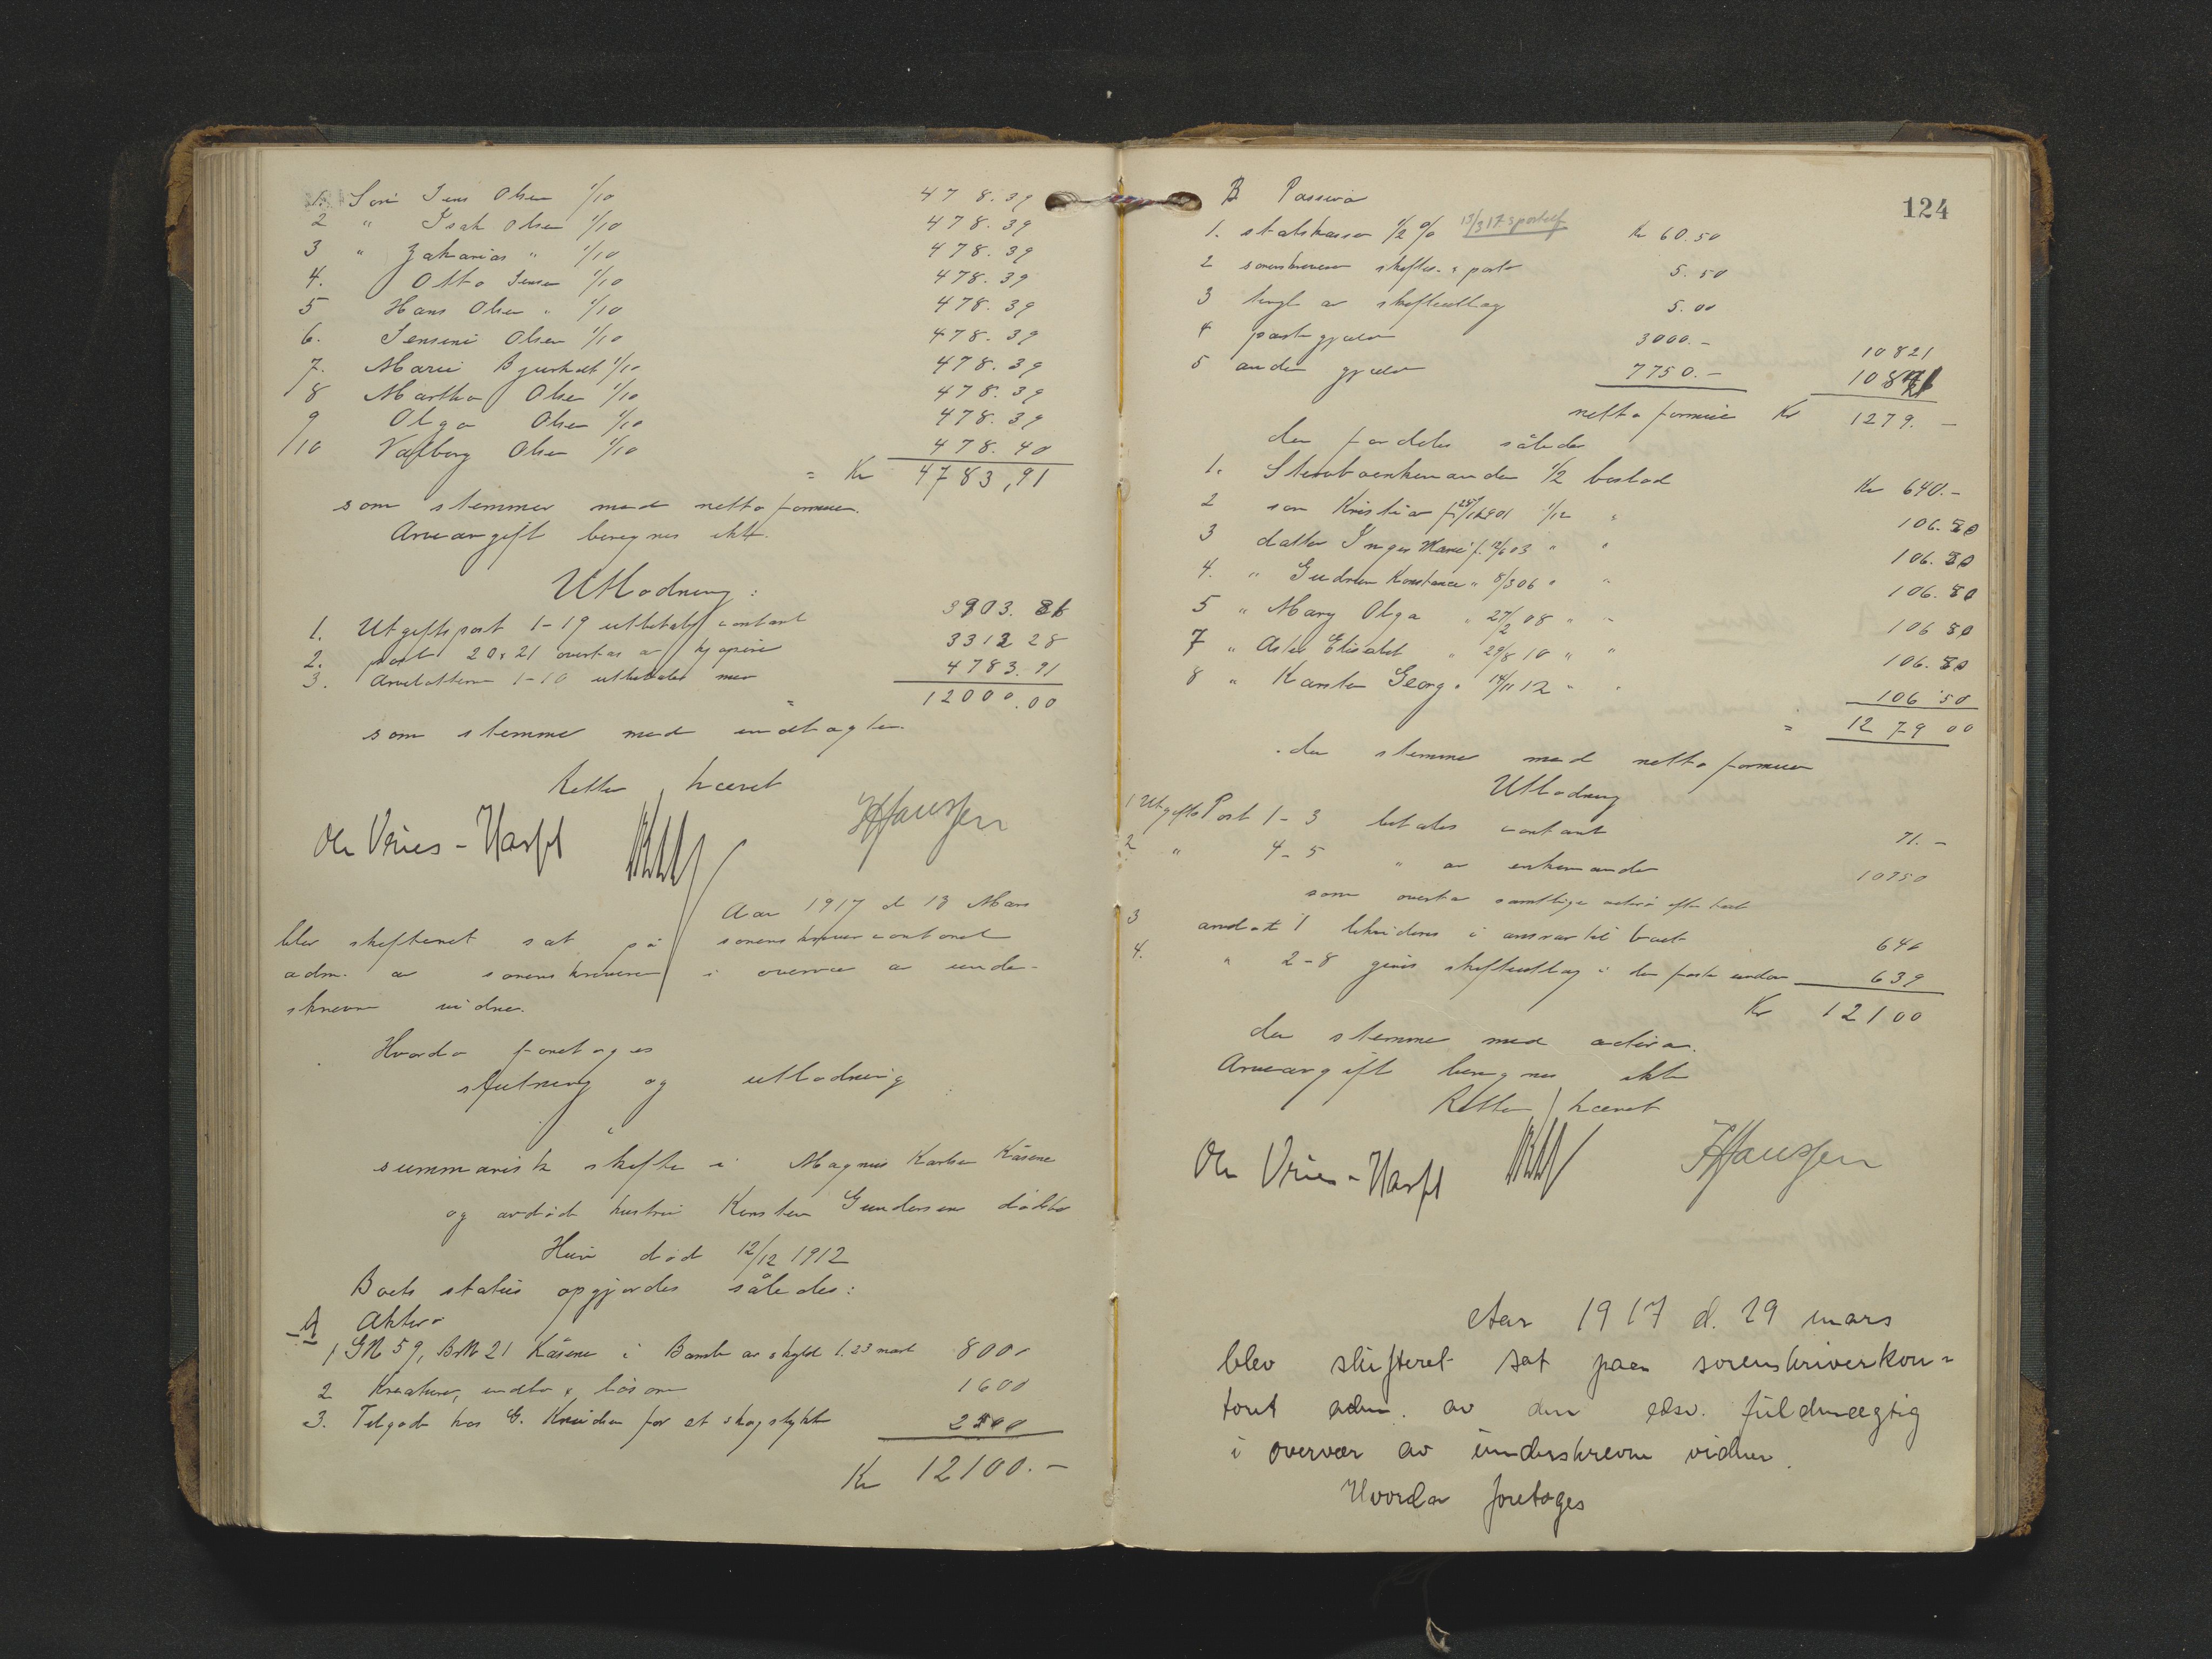 1. Søn Jens Olsen 1/10 478.39
2 " Isak Olsen 1/10 478.39
3 " Zakarias " 1/10 478.39
4. Otto Jensen 1/10 478.39
5 Hans Olsen " 1/10 478.39
6. Jensine Olsen 1/10 478.39
7. Marie 1/10 478.39
8 Martha Olsen 1/10 478.39
9 Olga Olsen 1/10 478.39
10 Valborg Olsen 1/10 478.40
= Kr 4783,91
som stemmer med netto formuen.
Arveavgift beregnes ikke.
Utlodning:
1. Utgiftspost 1-19 utbetales contant 3903.81
2. post 20 & 21 overtas av kjøperen 3312 28
3. Arvelotterne 1-10 utbetales med 4783.91
= 12000.00
som stemmer med indtægten.
Retten hævet
de Vries-Hassel
JHHanssen
Aar 1917 d 13 Mars
blev skifteret sat på sorenskrivercontoret
adm. av sorenskriveren i overvær av under-
skrevne vidner.
Hvorda foretoges
slutning og utlodning
i
summarisk skifte i Magnus Karlsen Kåsene
og avdøde hustru Kirsten Gundersens dødsbo
Hun død 12/12 1912
Boets status opgjordes således:
A Aktiva
1 GN 59, BrN 21 Kåsene i Bamble av skyld 1.23 mark 8000
2 Kreaturer, indbo & løsøre 1600
3. Tilgode hos G. Knudsen for et skogstykke 2500
Kr 12100.-
124
B Passiva
1. statskassen 1/2 % Kr 60.50
2 sorenskriveren skiftes. & porto 5.50
3 tingl av skifteutlæg 5.00
4 pantegjæld 3000.- 10821
5 anden gjæld 7750.-
netto formue Kr 1279.-
der fordeles således
1. Stervboenkemanden 1/2 boslod Kr 640.-
2 søn Kristian 1/12 " 106.50
3 datter Inger Marie f. 12/6 03 " " 106.50
4. " Gudrun Konstance " 8/3 06 " " 106.50
5 " Mary Olga " 27/2 08 " " 106 50
7 " Aslei Elisabet " 29/8 10 " " 106.50
8 " Karsten Georg " 14/11 12 " " 106 50
= 1279 00
der stemmer med netto formuen
Utlodning
1 Utgifts Post 1-3 betales contant 71.-
2 " 4-5 " av enkemanden 10750
som overtar samtlige activa efter takst
3 arvelod 1 likvideres i ansvar til boet 640
4. " 2-8 gives skifteutlæg i den faste eiendom 639
Kr 12100
der stemmer med activa.
Arveavgift beregnes ikke
Retten hævet
de Vries-Hassel
JHHanssen
Aar 1917 d. 29 mars
blev skifteret sat paa sorenskriverkon=
toret adm. av den edsv. fuldmægtig
i overvær av underskrevne vidner.
Hvorda foretoges